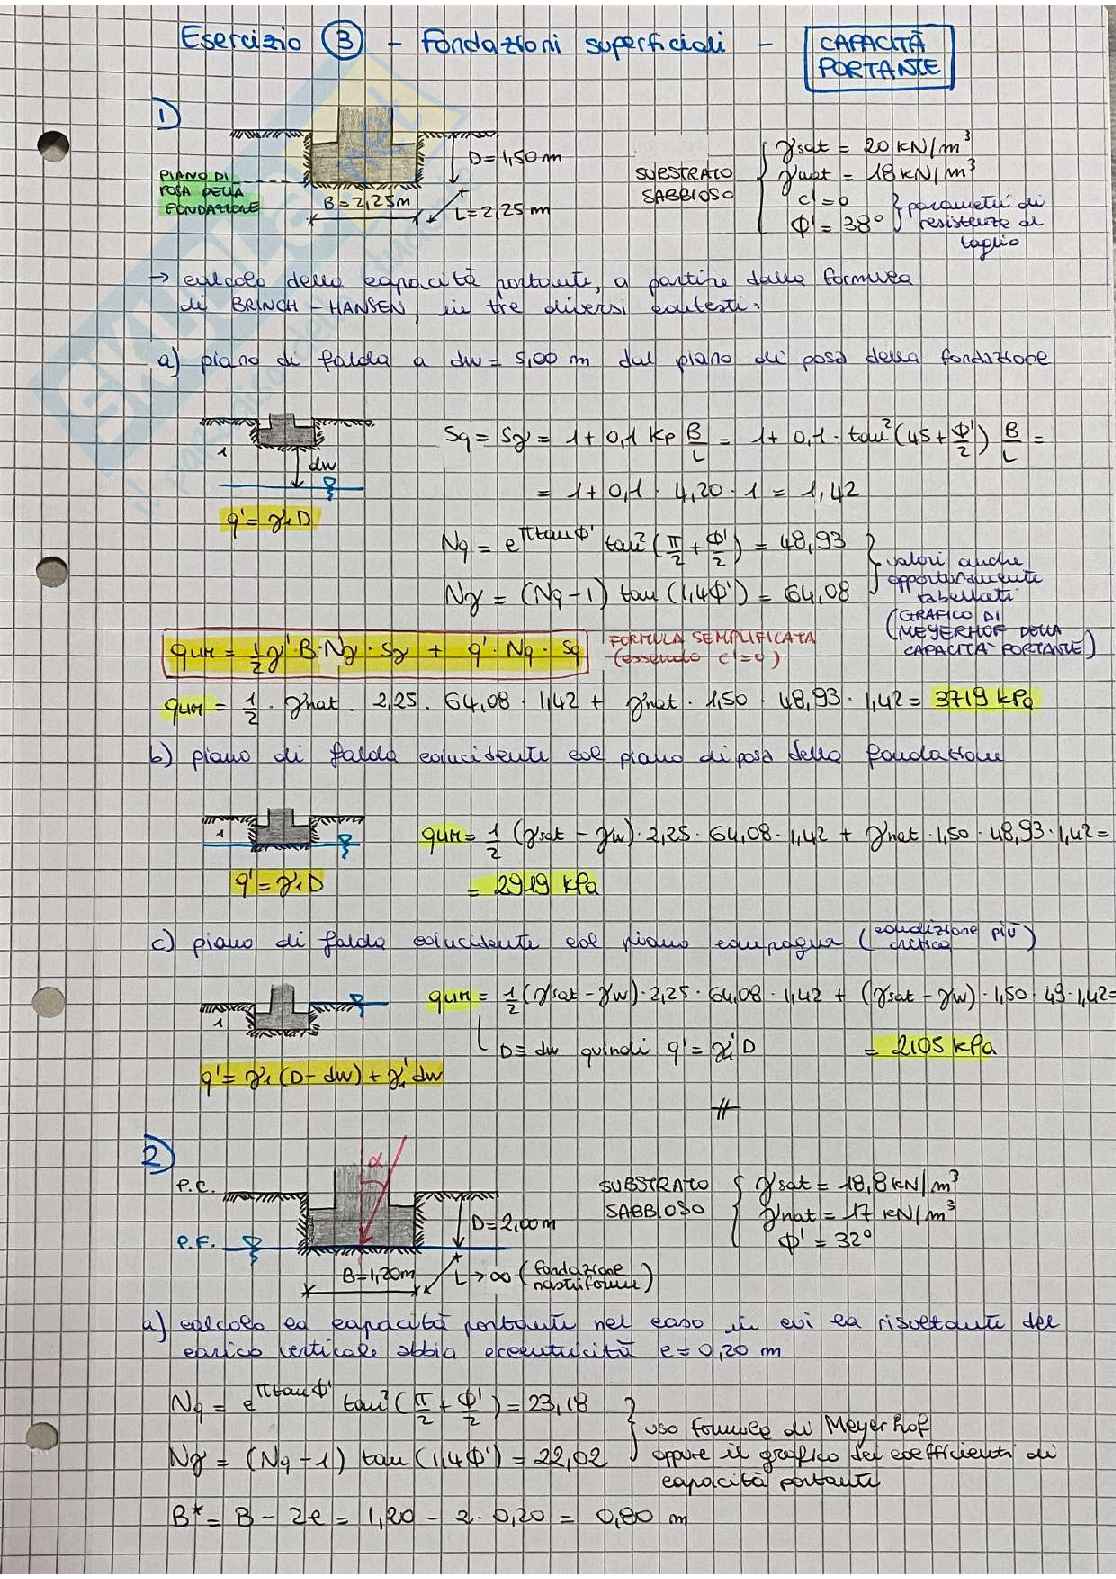 Esercizio 3 - Fondazioni superficiali - CAPACITÀ PORTANTE
1)
D = 1,50 m
PIANO DI POSA DELLA FONDAZIONE
B = 2,25 m
L = 2,25 m
SUBSTRATO SABBIOSO
γsat = 20 kN/m³
γnat = 18 kN/m³
c' = 0
Φ' = 38°
parametri di resistenza di taglio
→ calcolo della capacità portante, a partire dalla formula
di BRINCH-HANSEN, in tre diversi contesti:
a) piano di falda a dw = 5,00 m dal piano di posa della fondazione
1
dw
q' = γ₁D
Sq = Sγ = 1 + 0,1 Kp B/L = 1 + 0,1 · tan²(45 + Φ'/2) B/L =
= 1 + 0,1 · 4,20 · 1 = 1,42
Nq = e^πtanΦ' tan²(π/2 + Φ'/2) = 48,93
Nγ = (Nq - 1) tan(1,4Φ') = 64,08
valori anche opportunamente tabellati
(GRAFICO DI MEYERHOF DELLA CAPACITÀ PORTANTE)
qlim = 1/2 γ' · B · Nγ · Sγ + q' · Nq · Sq
FORMULA SEMPLIFICATA (essendo c' = 0)
qlim = 1/2 · γnat · 2,25 · 64,08 · 1,42 + γnat · 1,50 · 48,93 · 1,42 = 3719 kPa
b) piano di falda coincidente col piano di posa della fondazione
1
q' = γ₁D
qlim = 1/2 (γsat - γw) · 2,25 · 64,08 · 1,42 + γnat · 1,50 · 48,93 · 1,42 =
= 2919 kPa
c) piano di falda coincidente col piano campagna (condizione più critica)
1
q' = γ₁(D - dw) + γ₁'dw
qlim = 1/2 (γsat - γw) · 2,25 · 64,08 · 1,42 + (γsat - γw) · 1,50 · 49 · 1,42 =
D = dw quindi q' = γ₁'D
= 2105 kPa
2)
α
P.C.
P.F.
D = 2,00 m
B = 1,20 m
L → ∞ (fondazione nastriforme)
SUBSTRATO SABBIOSO
γsat = 18,8 kN/m³
γnat = 17 kN/m³
Φ' = 32°
a) calcolo la capacità portante nel caso in cui la risultante del
carico verticale abbia eccentricità e = 0,20 m
Nq = e^πtanΦ' tan²(π/2 + Φ'/2) = 23,18
Nγ = (Nq - 1) tan(1,4Φ') = 22,02
uso formule di Meyerhof
oppure il grafico dei coefficienti di
capacità portante
B* = B - 2e = 1,20 - 2 · 0,20 = 0,80 m